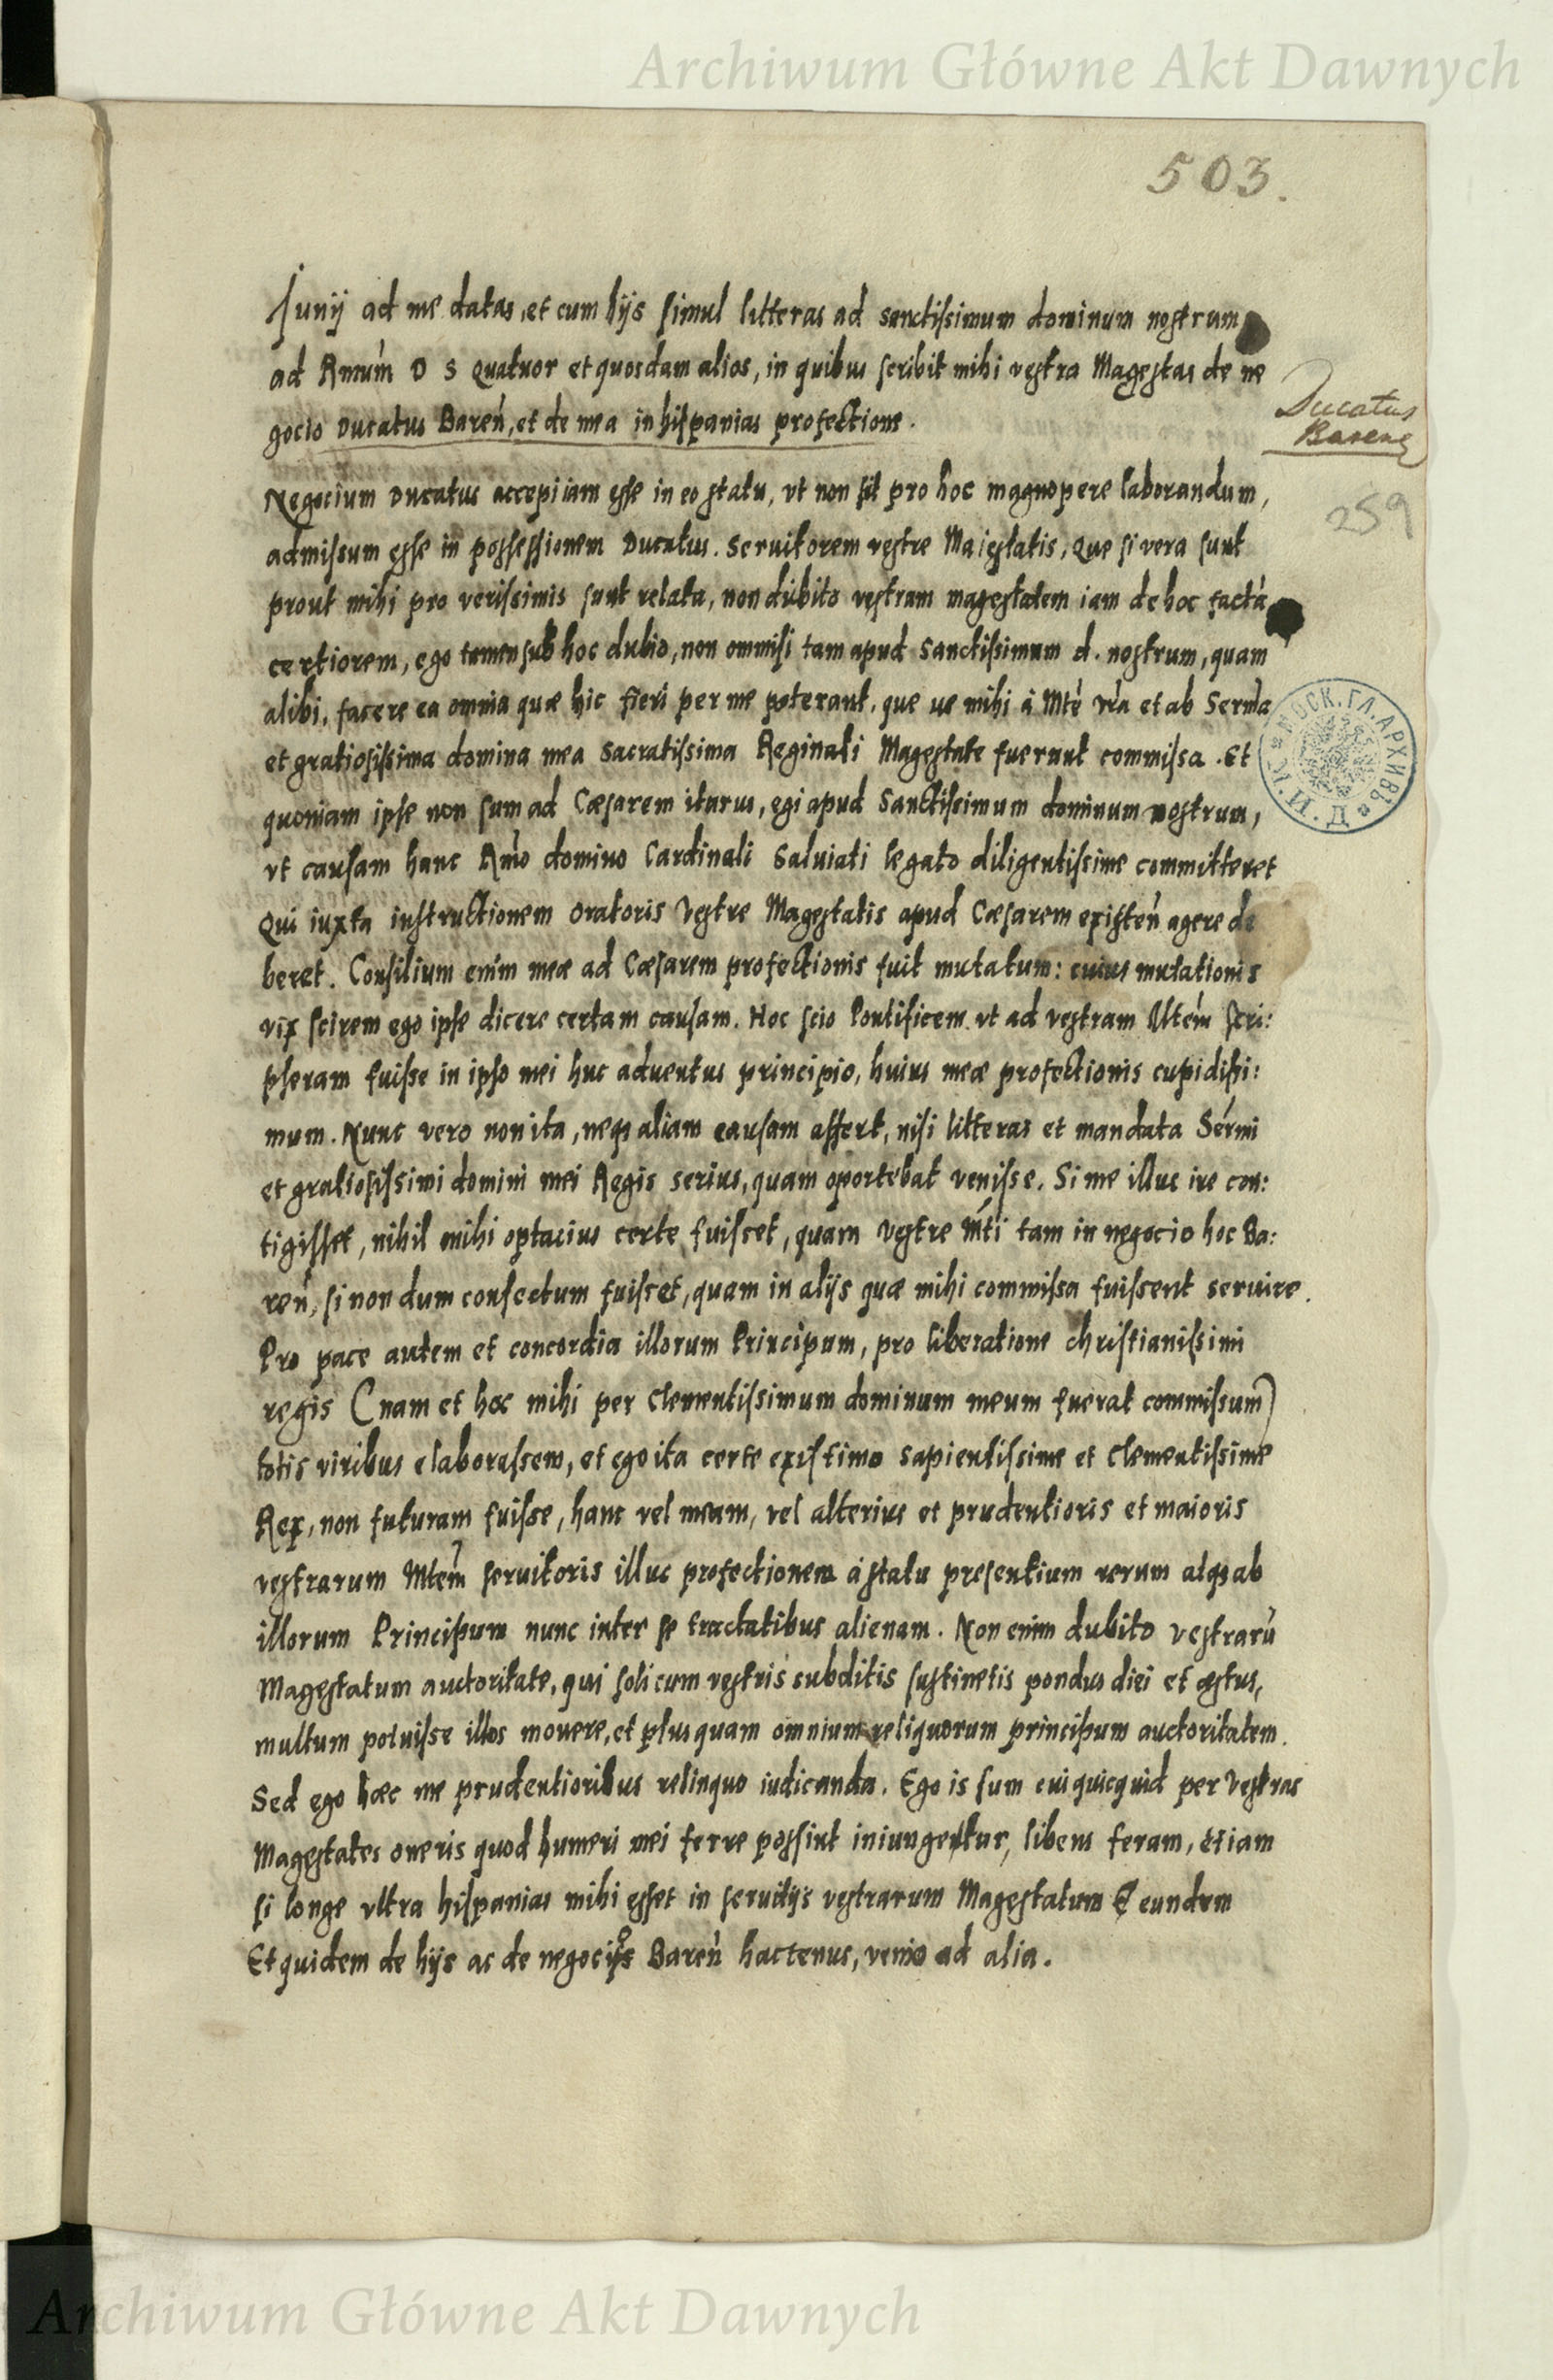 Archiwum Główne Akt Dawnych
503.
Junij ad me datas, et cum hijs simul litteras ad sanctissimum dominum nostrum
ad Rmum D S quatuor et quosdam alios, in quibus scribit mihi vestra Magestas de ne
gocio Ducatus Baren, et de mea in hispanias profectione.
Ducatus
Barens
Negocium Ducatus accepi iam esse in eo statu, vt non sit pro hoc magnopere laborandum,
259
admissum esse in possessionem Ducatus. Servitorem vestre Maiestatis, Que si vera sunt
prout mihi pro verissimis sunt relata, non dubito vestram magestatem iam de hoc factã
certiorem, ego tamen sub hoc dubio, non ommisi tam apud Sanctissimum d. nostrum, quam
alibi, facere ea omnia quæ hic fieri per me poterant, que ue mihi à Mte vra et ab Serma
et gratiosissima domina mea Sacratissima Reginali Magestate fuerunt commissa. Et
quoniam ipse non sum ad Cæsarem iturus, egi apud Sanctissimum dominum nostrum,
vt causam hanc Rmo domino Cardinali Salviati legato diligentissime committeret
Qui iuxta instructionem Oratoris Vestre Magestatis apud Cæsarem existen agere de
beret. Consilium enim meæ ad Cæsarem profectionis fuit mutatum: cuius mutationis
vix scirem ego ipse dicere certam causam. Hoc scio Pontificem vt ad vestram Mtem scri:
pseram fuisse in ipso mei huc adventus principio, huius meæ profectionis cupidissi:
mum. Nunc vero non ita, neqз aliam causam affert, nisi litteras et mandata Sermi
et gratiosissimi domini mei Regis serius, quam oportebat venisse. Si me illuc ire con:
tigisset, nihil mihi optacius certe fuisset, quam Vestre Mti tam in negocio hoc Ba:
ren, si non dum confectum fuisset, quam in alijs quæ mihi commissa fuissent servire.
Pro pace autem et concordia illorum Principum, pro liberatione christianissimi
regis (nam et hoc mihi per clementissimum dominum meum fuerat commissum)
totis viribus elaborassem, et ego ita certe existimo sapientissime et clementissime
Rex, non futuram fuisse, hanc vel meam, vel alterius et prudentioris et maioris
vestrarum Mtem servitoris illuc profectionem á statu presentium rerum atqз ab
illorum Principum nunc inter se tractatibus alienam. Non enim dubito vestrarũ
Magestatum auctoritate, qui soli cum vestris subditis sustinetis pondus diei et æstus,
multum potuisse illos movere, et plus quam omnium reliquorum principum auctoritatem.
Sed ego hæc me prudentioribus relinquo iudicanda. Ego is sum cui quicquid per Vestras
Magestates oneris quod humeri mei ferre possint iniungentur, libens feram, etiam
si longe vltra hispanias mihi esset in servitijs vestrarum Magestatum eundem
Et quidem de hijs ac de negocijs Baren hactenus, venio ad alia.
Archiwum Główne Akt Dawnych